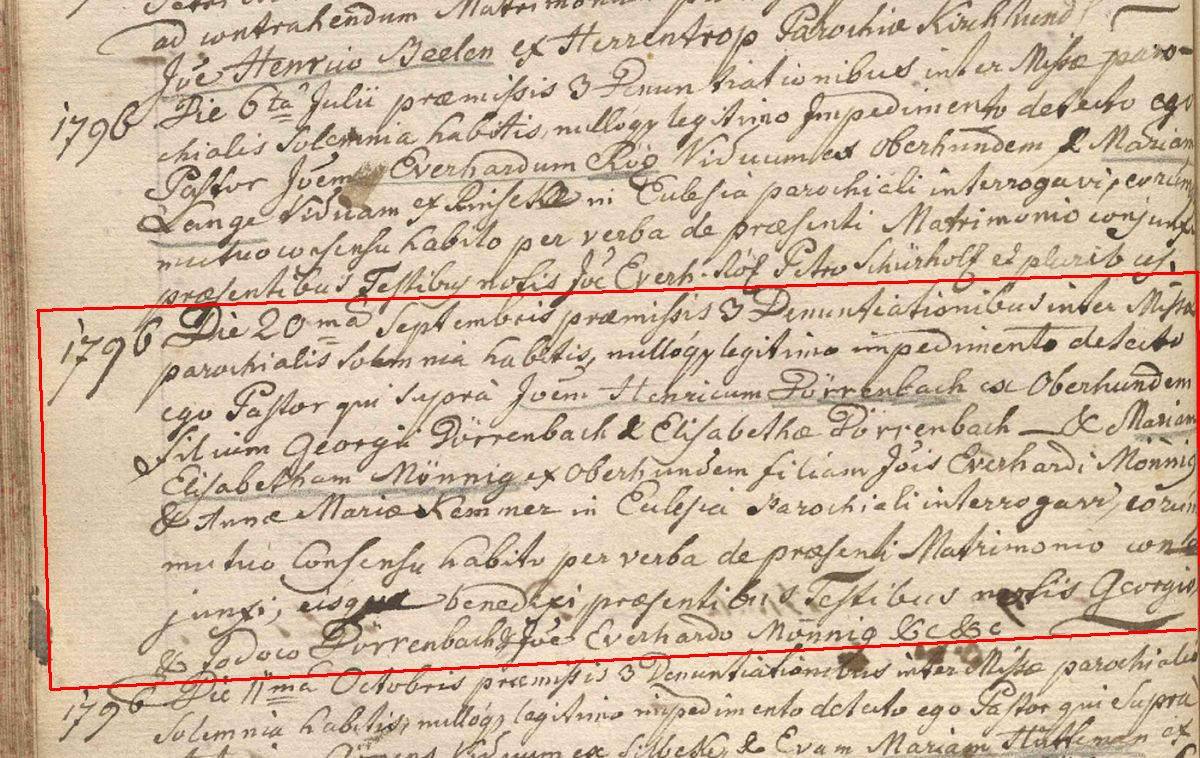 ad contrahendum Matrimonium
Jõe Henrico Beelen ex Herrentrop Parochiæ Kirchhund
1796 Die 6ta Julii præmissis 3 Denuntiationibus inter Missæ paro-
chialis solemnia habitis, nullóq legitimo Impedimento detecto ego
Pastor Jõem Everhardum Röe Viduum ex Oberhundem & Mariam
Lange Viduam ex Rinseke in Eclesia parochiali interrogavi, eorum
mutuo consensu habito per verba de præsenti Matrimonio conjunxi
præsentibus Testibus notis Jõe Everh. Röe Petro Schürholf et pluribus.
1796 Die 20 ma Septembris præmissis 3 Denuntiationibus inter Missæ
parochialis solemnia habitis, nullóq legitimo impedimento detecto
ego Pastor qui suprà Jõem Henricum Dörrenbach ex Oberhundem
filium Georgii Dörrenbach & Elisabethæ Dörrenbach — & Mariam
Elisabetham Mönnig ex Oberhundem filiam Jõis Everhardi Mönnig
& Annæ Mariæ Kemmer in Eclesia Parochiali interrogavi, eorum
mutuo Consensu habito per verba de præsenti Matrimonio con
junxi, eisque benedixi præsentibus Testibus notis Georgio
& Jodoco Dörrenbach & Jõe Everhardo Mönnig &c &c
1796 Die 11ma Octobris præmissis 3 Denuntiationibus inter Missæ parochialis
solemnia habitis, nullóq legitimo impedimento detecto ego Pastor qui supra
Viduum ex Silbeke, & Evam Mariam Hütteman ex